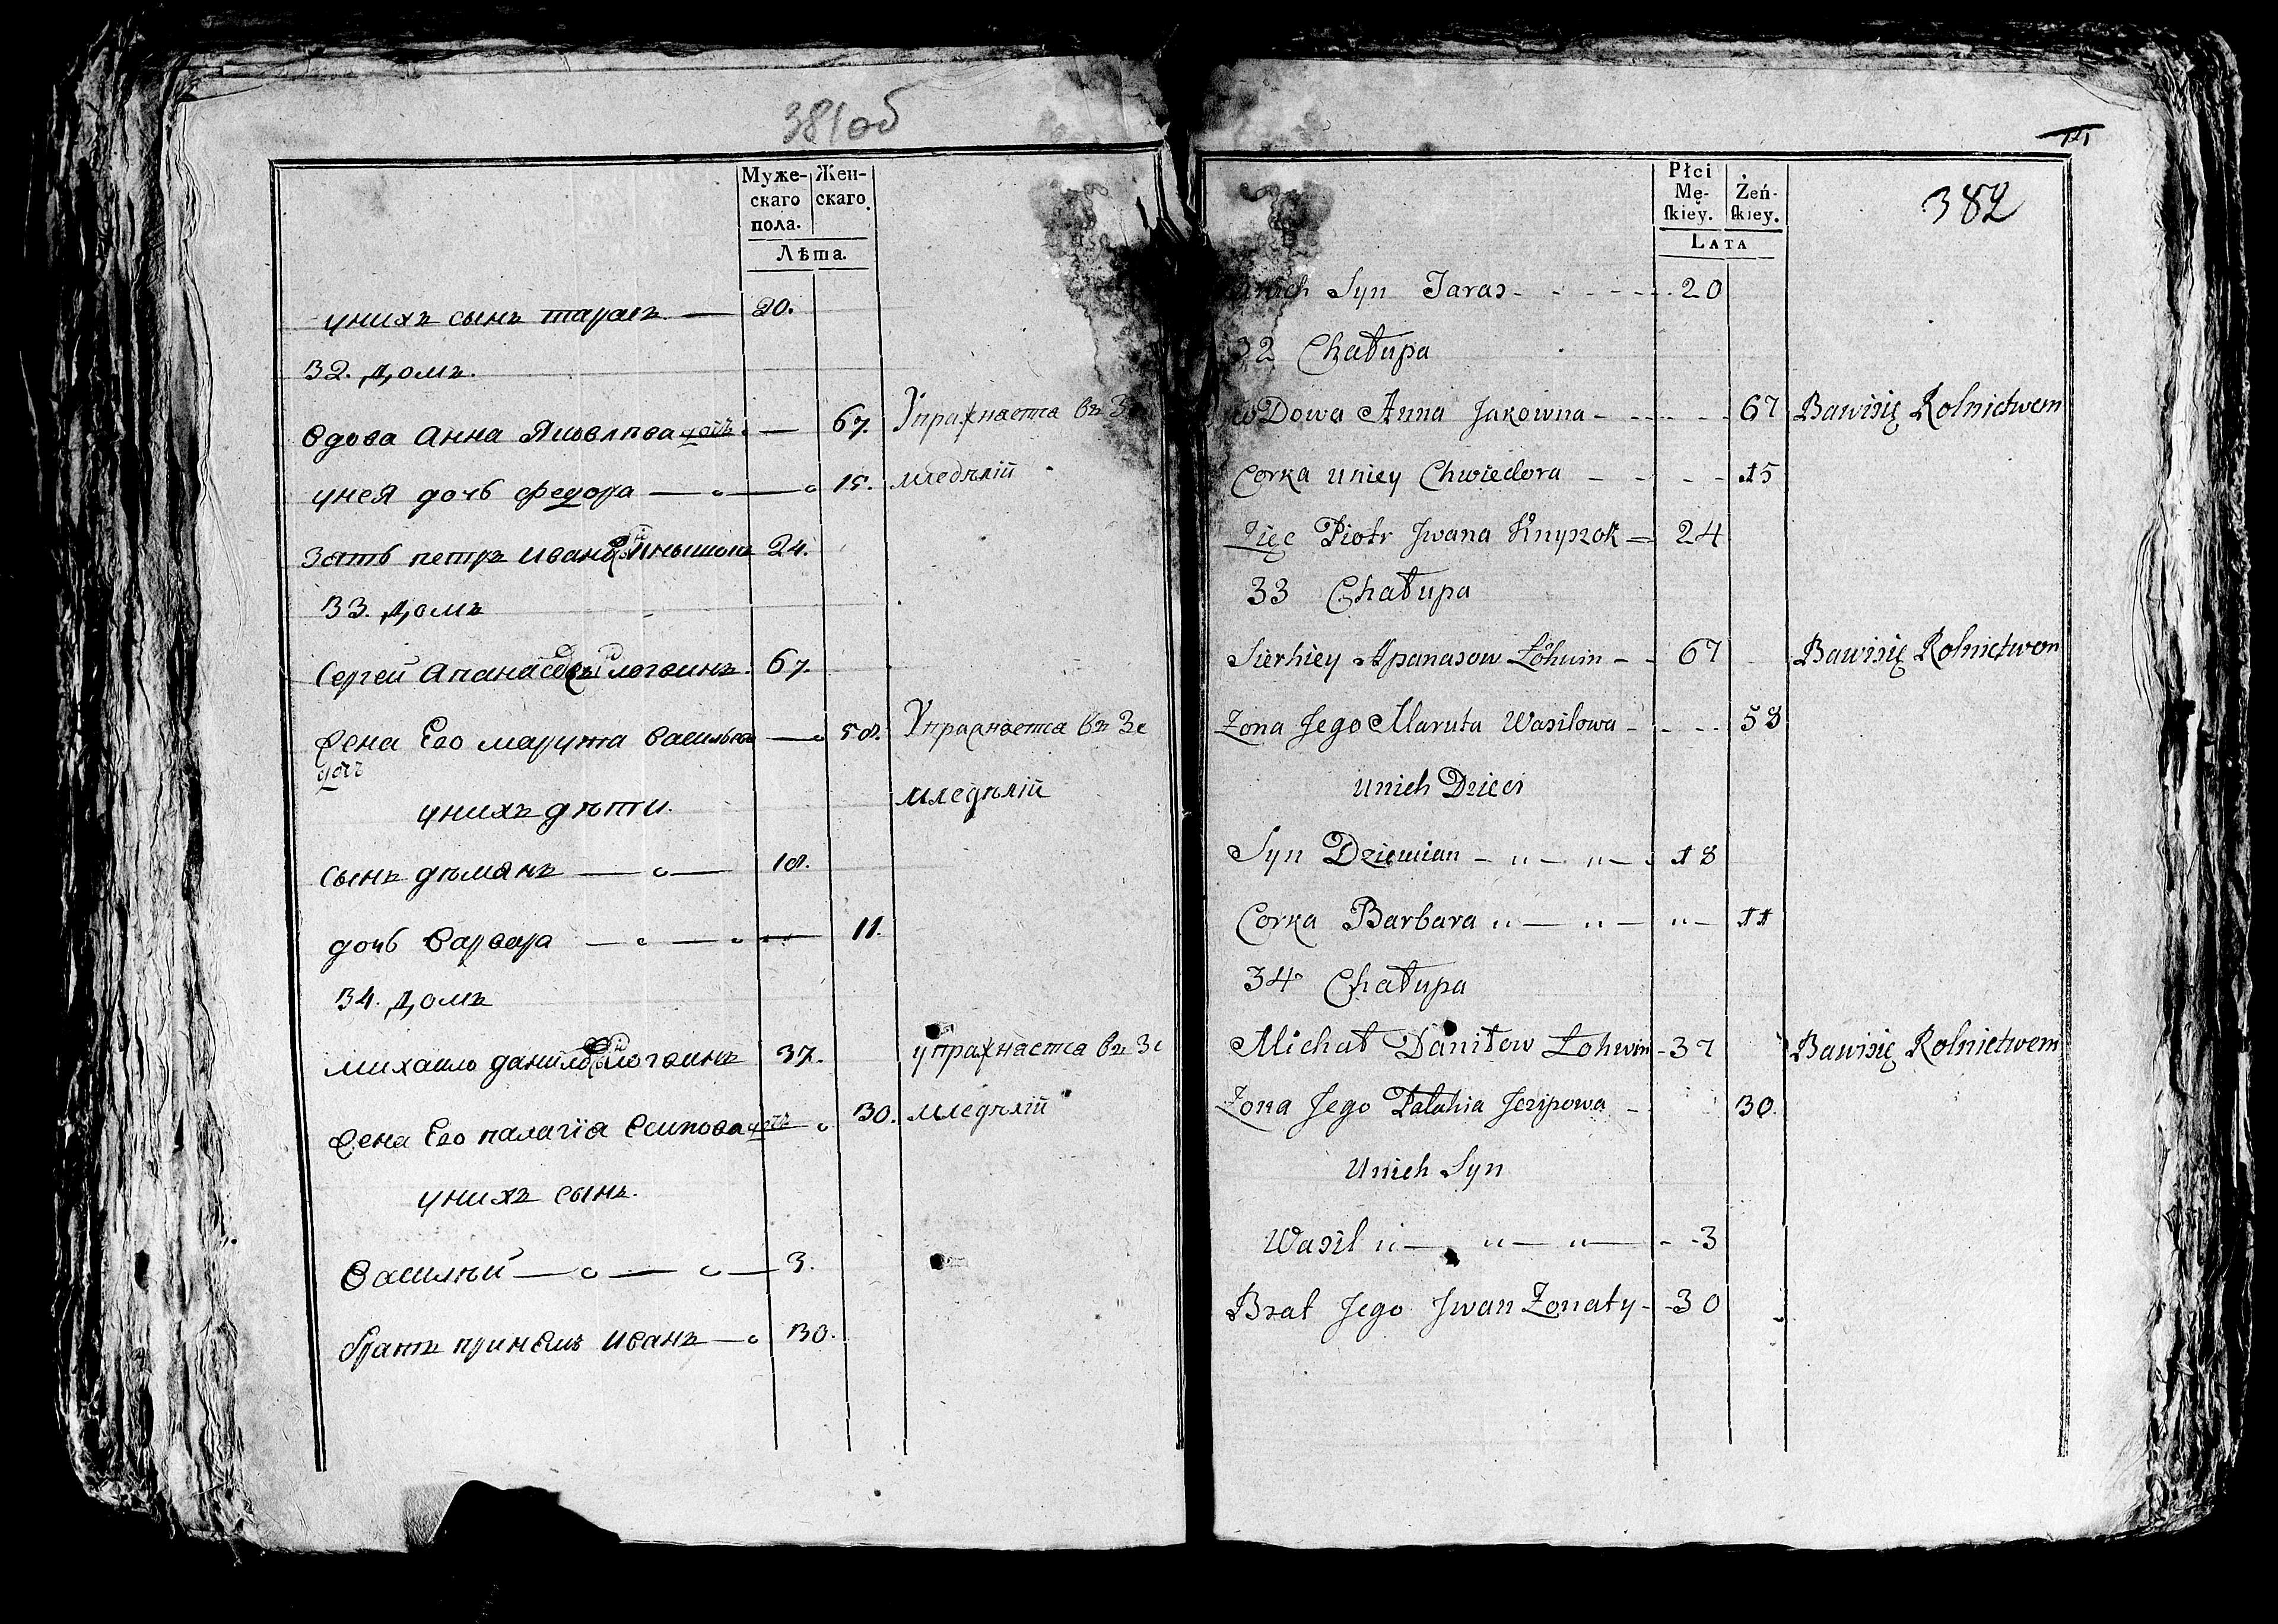 381об
Муже- Жен-
скаго скаго.
пола.
Лѣта.
унихъ сынъ тарасъ — 20.
32. домъ.
вдова Анна Яковлева дочь — 67. Упражнается въ Зе
унея дочь федора — 15. мледѣлїи
зять петръ ивановъ 24.
33. домъ
Сергей Апанасовъ логвинъ. 67.
жена Его марута васильева — 58. Упражнается въ Зе
дочь
мледѣлїи
унихъ дѣти.
сынъ дѣмянъ — 18.
дочь варвара — 11.
34. домъ
михаило данило логвинъ 37. упражнается въ Зе
жена Его палагїя Есипова дочь 30. мледѣлїи
унихъ сынъ.
василѣй — 3.
братъ Иванъ — 30.
14
Płci
Mę- Żeń-
ſkiey. ſkiey.
LATA
382
Unich Syn Taras - - - - 20
32 Chałupa
wDowa Anna Jakowna - - - - 67 Bawisię Rolnictwem
Corka uniey Chwiedora - - - - 15
Zięc Piotr Jwana Knyszok - 24
33 Chałupa
Sierhiey Apanasow Łohwin - - 67 Bawisię Rolnictwem
Zona Jego Maruta Wasilowa - - - - 58
Unich Dzieci
Syn Dziemian - „ - „ - 18
Corka Barbara „ — „ — „ — 11
34 Chałupa
Michał Daniłow Łohwin - 37 Bawisię Rolnictwem
Zona Jego Palahia Jezipowa - 30
Unich Syn
Wasil „ — „ — „ — - 3
Brat Jego Jwan Zonaty - 30